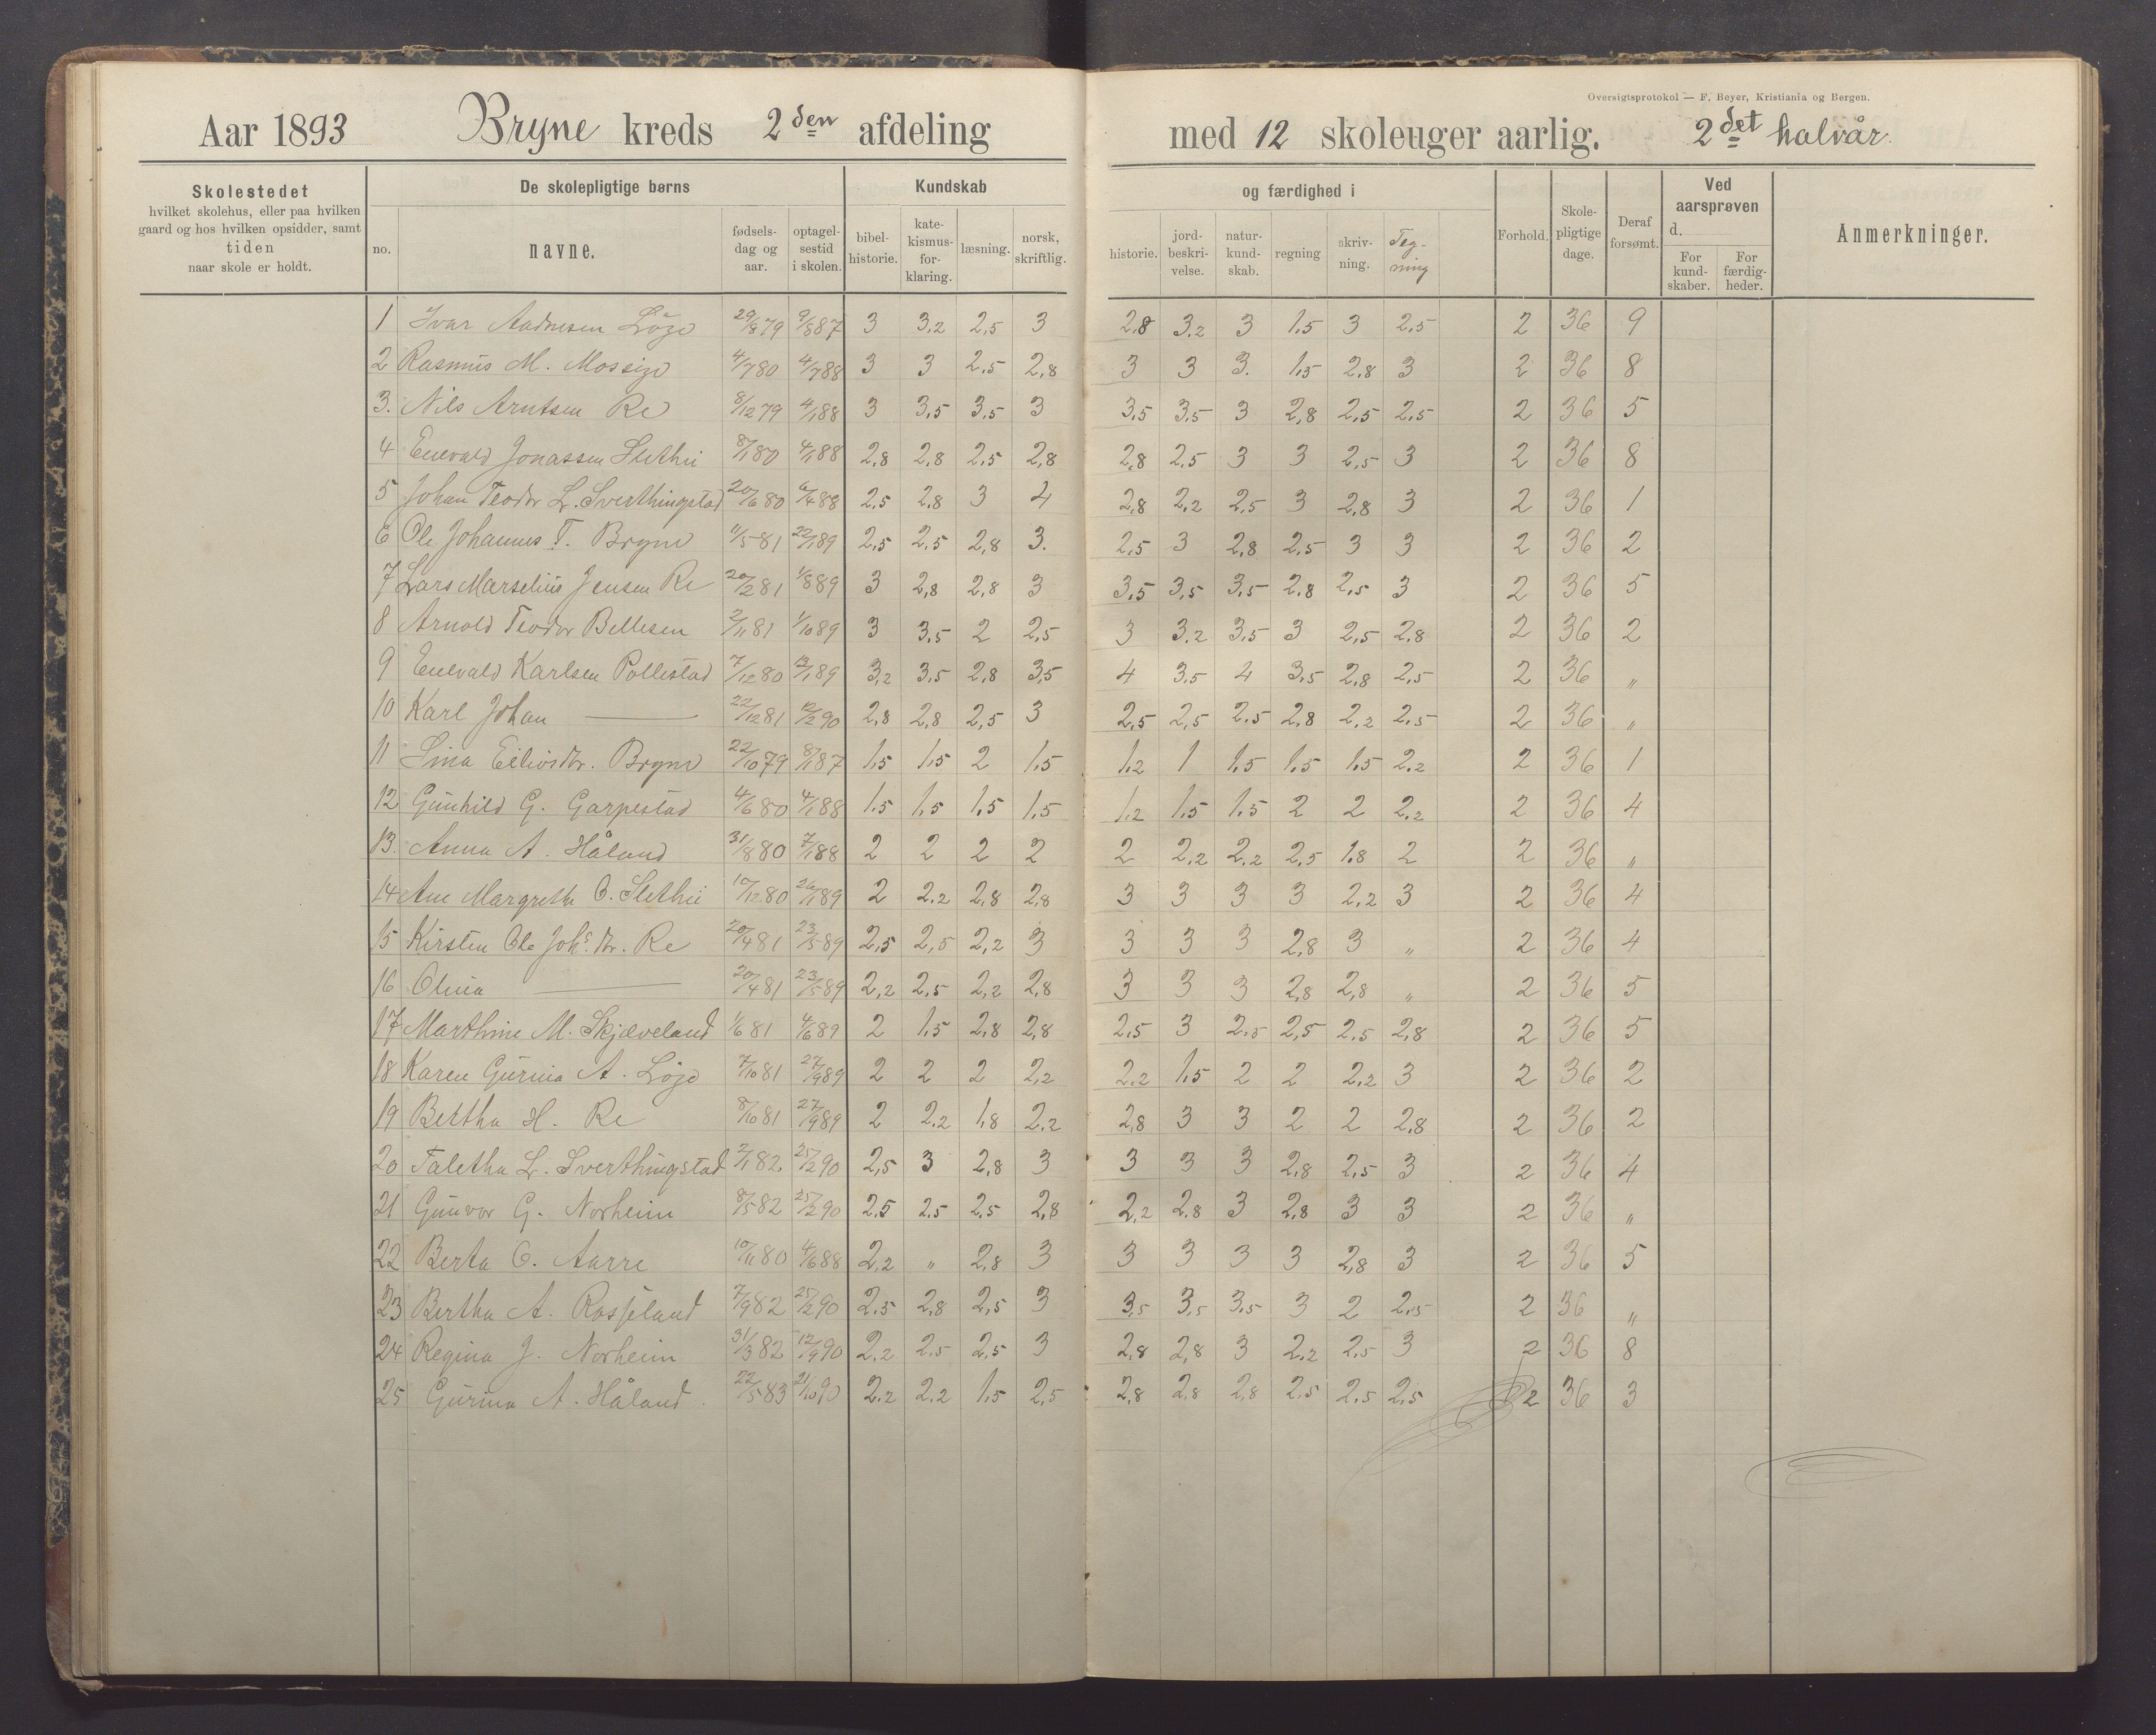 Oversigtsprotokol — F. Beyer, Kristiania og Bergen.
Aar 1893 Bryne kreds 2den afdeling med 12 skoleuger aarlig. 2det halvår.
Skolestedet
hvilket skolehus, eller paa hvilken
gaard og hos hvilken opsidder, samt
tiden
naar skole er holdt.
De skolepligtige børns
no.
navne.
fødsels-
dag og
aar.
optagel-
sestid
i skolen.
Kundskab
bibel-
historie.
kate-
kismus-
for-
klaring.
læsning.
norsk,
skriftlig.
og færdighed i
historie.
jord-
beskri-
velse.
natur-
kund-
skab.
regning
skriv-
ning.
Teg-
ning
Forhold.
Skole-
pligtige
dage.
Deraf
forsømt.
Ved
aarsprøven
d.
For
kund-
skaber.
For
færdig-
heder.
Anmerkninger.
1 Ivar Aadnesen Löge 29/8 79 9/8 87 3 3,2 2,5 3 2,8 3,2 3 1,5 3 2,5 2 36 9
2 Rasmus M. Mossige 4/7 80 4/7 88 3 3 2,5 2,8 3 3 3. 1,5 2,8 3 2 36 8
3. Nils Arntsen Re 8/12 79 4/1 88 3 3,5 3,5 3 3,5 3,5 3 2,8 2,5 2,5 2 36 5
4 Enevald Jonassen Slethei 8/1 80 4/1 88 2,8 2,8 2,5 2,8 2,8 2,5 3 3 2,5 3 2 36 8
5 Johan Teodor L. Sverthingstad 20/6 80 6/4 88 2,5 2,8 3 4 2,8 2,2 2,5 3 2,8 3 2 36 1
6 Ole Johannes T. Bryne 11/5 81 22/1 89 2,5 2,5 2,8 3. 2,5 3 2,8 2,5 3 3 2 36 2
7 Lars Marselius Jensen Re 20/2 81 1/8 89 3 2,8 2,8 3 3,5 3,5 3,5 2,8 2,5 3 2 36 5
8 Arnold Teodor Bellesen 2/11 81 1/10 89 3 3,5 2 2,5 3 3,2 3,5 3 2,5 2,8 2 36 2
9 Enevald Karlsen Pollestad 7/12 80 12/1 89 3,2 3,5 2,8 3,5 4 3,5 4 3,5 2,8 2,5 2 36 "
10 Karl Johan — 22/12 81 12/2 90 2,8 2,8 2,5 3 2,5 2,5 2,5 2,8 2,2 2,5 2 36 "
11 Sina Eilivsdtr. Bryne 22/10 79 8/1 87 1,5 1,5 2 1,5 1,2 1 1,5 1,5 1,5 2,2 2 36 1
12 Gunhild G. Garpestad 4/6 80 4/1 88 1,5 1,5 1,5 1,5 1,2 1,5 1,5 2 2 2,2 2 36 4
13. Anna A. Håland 31/8 80 7/1 88 2 2 2 2 2 2,2 2,2 2,5 1,8 2 2 36 "
14 Ane Margrethe O. Slethei 10/12 80 26/1 89 2 2,2 2,8 2,8 3 3 3 3 2,2 3 2 36 4
15 Kirsten Ole Johs. dtr. Re 20/4 81 23/5 89 2,5 2,5 2,2 3 3 3 3 2,8 3 " 2 36 4
16 Olina — 20/4 81 23/5 89 2,2 2,5 2,2 2,8 3 3 3 2,8 2,8 " 2 36 5
17 Marthine M. Skjæveland 1/6 81 4/6 89 2 1,5 2,8 2,8 2,5 3 2,5 2,5 2,5 2,8 2 36 5
18 Karen Gurina A. Löge 7/10 81 27/9 89 2 2 2 2,2 2,2 1,5 2 2 2,2 3 2 36 2
19 Bertha H. Re 8/10 81 27/9 89 2 2,2 1,8 2,2 2,8 3 3 2 2 2,8 2 36 2
20 Taletha L. Sverthingstad 2/1 82 25/2 90 2,5 3 2,8 3 3 3 3 2,8 2,5 3 2 36 4
21 Gunvor G. Norheim 8/5 82 25/2 90 2,5 2,5 2,5 2,8 2,2 2,8 3 2,8 3 3 2 36 "
22 Berta O. Aarre 10/11 80 4/6 88 2,2 " 2,8 3 3 3 3 3 2,8 3 2 36 5
23 Bertha A. Rosseland 7/9 82 25/2 90 2,5 2,8 2,5 3 3,5 3,5 3,5 3 2 2,5 2 36 "
24 Regina J. Norheim 31/3 82 12/9 90 2,2 2,5 2,5 3 2,8 2,8 3 2,2 2,5 3 2 36 8
25 Gurina A. Håland. 22/5 83 21/10 90 2,2 2,2 1,5 2,5 2,8 2,8 2,8 2,5 2,5 2,5 2 36 3